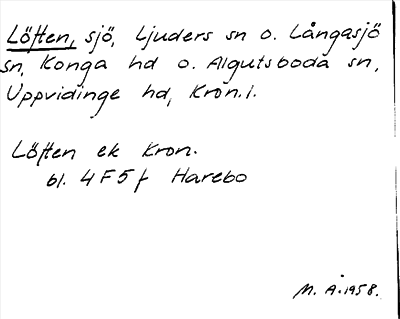 Löften, sjö, Ljuders sn o. Långasjö
sn, Konga hd o. Algutsboda sn,
Uppvidinge hd, Kron.l.
Löften ek Kron.
bl. 4F5f Harebo
M. Å. 1958.